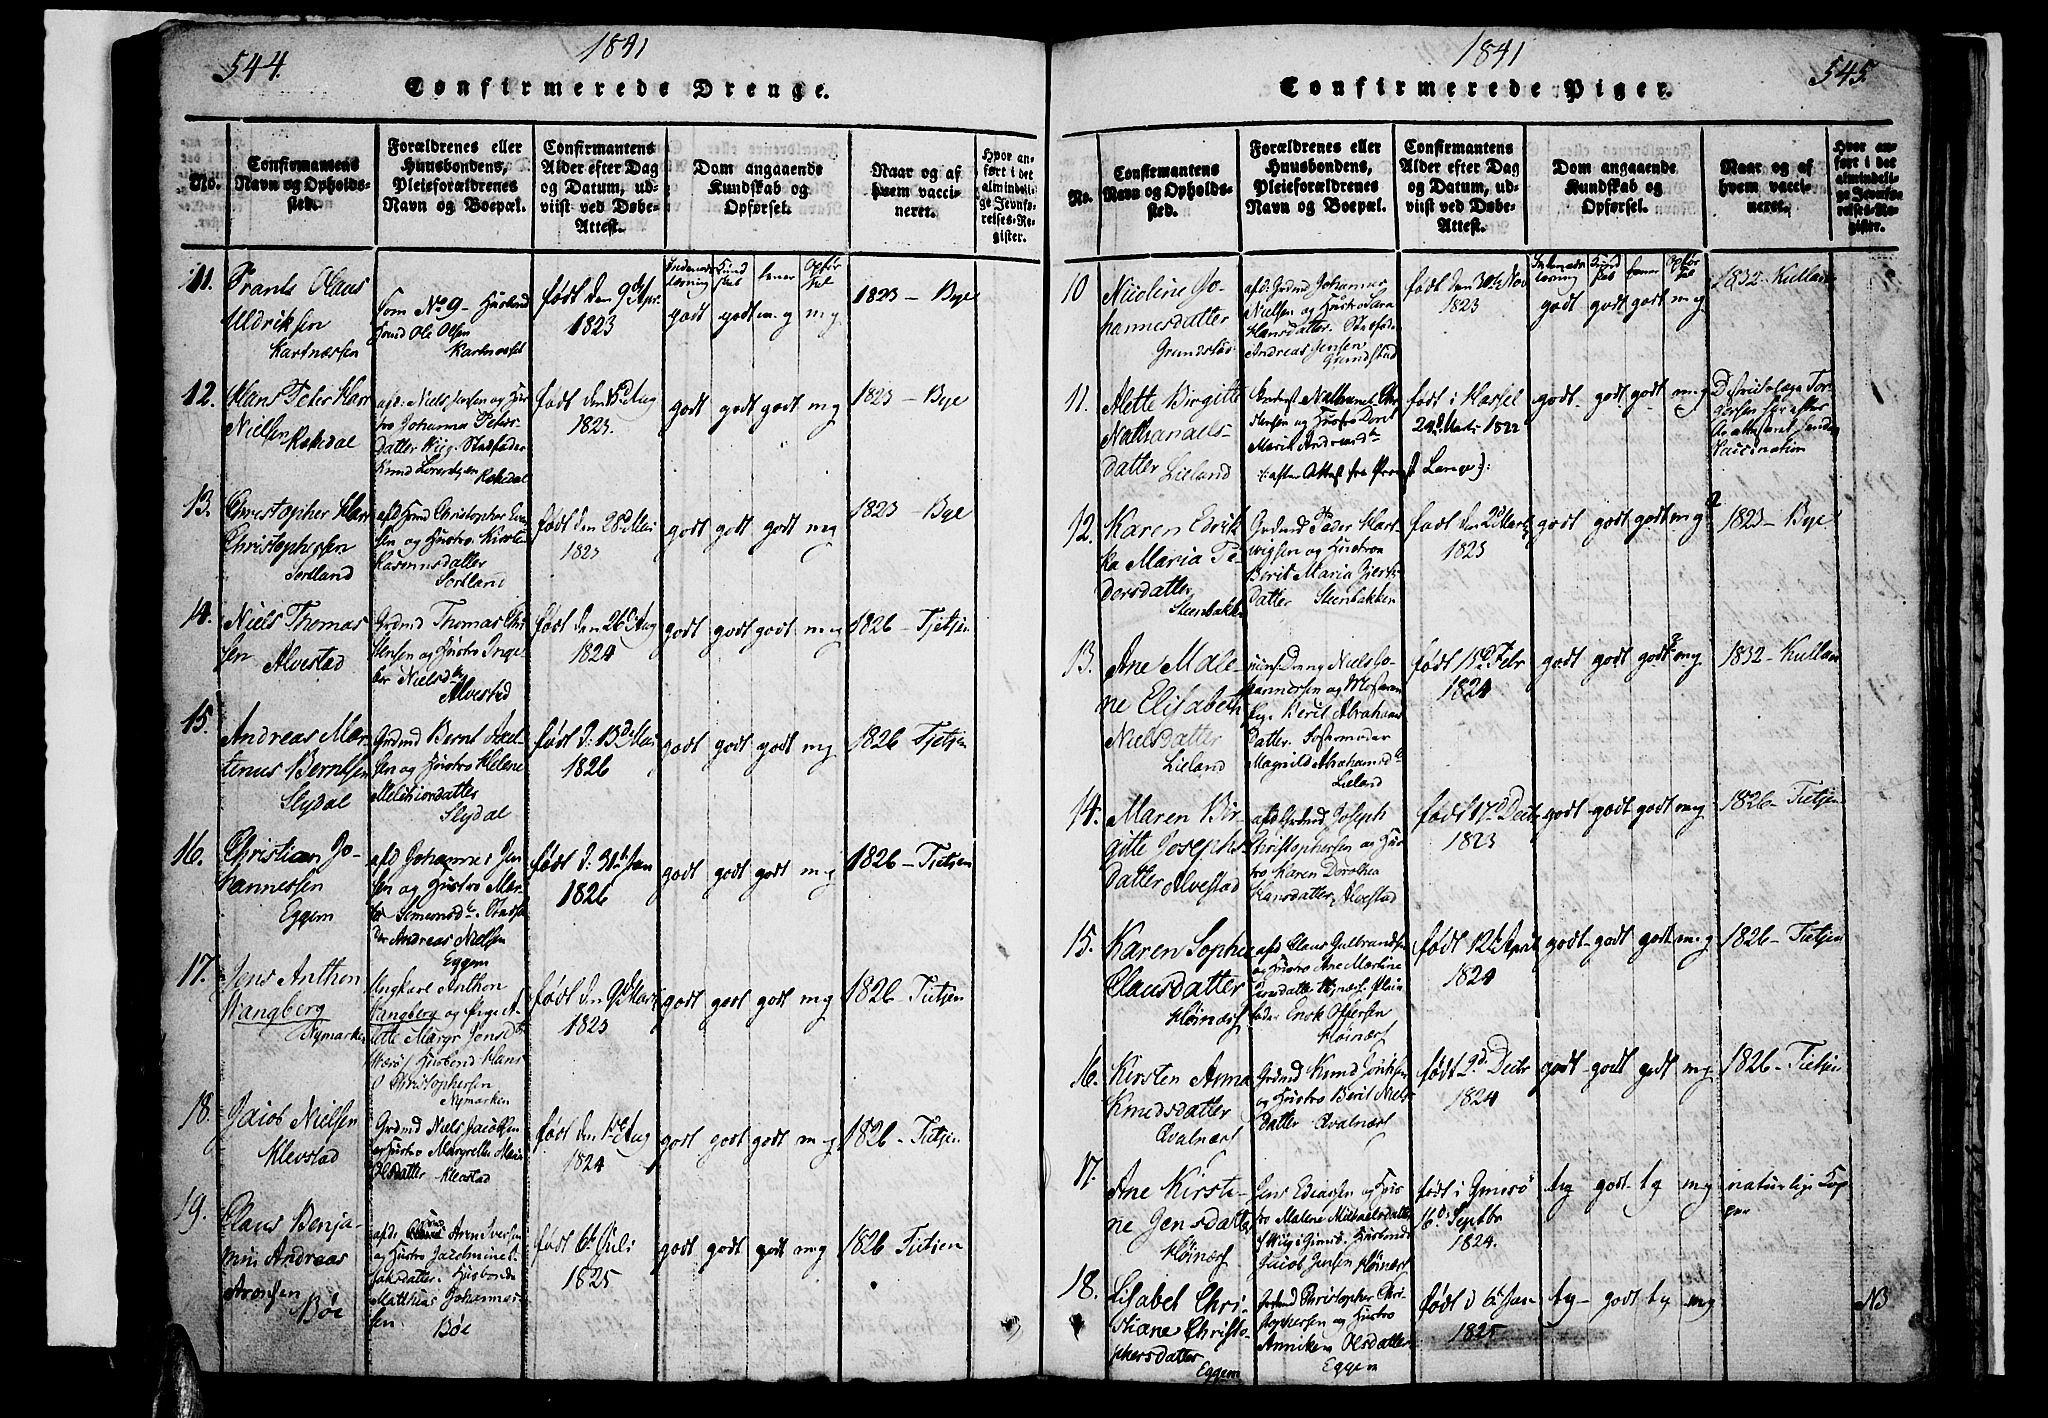 544.
1841
Confirmerede Drenge.
No.
Confirmantens
Navn og Opholds-
sted.
Forældrenes eller
Huusbondens,
Pleieforældrenes
Navn og Boepæl.
Confirmantens
Alder efter Dag
og Datum, ud-
viist ved Døbe-
Attest.
Dom angaaende
Kundskab og
Opførsel.
Naar og af
hvem vacci-
neret.
Hvor an-
ført i det
almindeli-
ge Jevnfø-
relses-Re-
gister.
11.
Frants Olaus
Uldriksen
Som No 9 - Husbond
Grmd Ole Olsen
født den 9de Apr.
1823
godt godt m-g mg
1823 - Bye
12.
Hans Peter
Nielsen Rokedal
afd. Niels Jensen og Hu-
stro Johanna Peders-
datter
Knud Lorentzen
Rokedal
født den 15d Aug
1823.
godt godt godt mg
1823 - Bye
13.
Christopher
Christophersen
Sortland
afd Grmd Christopher
sen og Hustro
Rasmusdatter
Sortland
født den 28d Mai
1823
godt godt godt mg
1823 - Bye
14.
Niels Thomas
sen Alvestad
Grdmd Thomas Chri
stensen og Hustro Inge-
bor Nielsd
Alvestad
født den 26d Aug
1824
godt godt godt m-g
1826 - Tjetjen
15.
Andreas Mar-
tinus Berntsen
Slydal
Grdmd Bernt Axel-
sen og Hustro Helene
Melchiorsdatter
Slydal
født d. 13d Mai
1826
godt godt godt mg
1826 - Tjetjen
16.
Christian Jo-
hannessen
Eggem
afd Johannes Jen
sen og Hustro Mar-
Simonsd. Stedfa
der Andreas Nielsen
Eggem
født d: 31te Jan
1826
godt godt godt m-g
1826 - Tietjen
17.
Jens Anthon
Wangberg
Nymarken
Ungkarl Anthon
Wangberg og Pige A-
lette Margr Jensd
Værøy Husbond Hans
Christophersen
Nymarken
født den 9d Marti
1823
godt godt godt m-g
1826 - Tietjen
18.
Jacob Nielsen
Klevstad
Grdmd Niels Jacobsen
og Hustro Margrethe
Olsdatter Klevstad
født den 1de Aug
1824
godt godt godt m-g
1826 - Tietjen
19.
Claus Benja-
min Andreas
Aronsen
Bøe
afd. Aron Iversen
og Hustro Jacobmine I-
saksdatter. Husbonde
Matthias Johannes-
sen Bøe
født 6d Juli
1825
godt godt godt m-g
1826 Tietjen
1841
545.
Confirmerede Piger.
No.
Confirmantens
Navn og Opholds-
sted.
Forældrenes eller
Huusbondens,
Pleieforældrenes
Navn og Boepæl.
Confirmantens
Alder efter Dag
og Datum, ud-
viist ved Døbe-
Attest.
Dom angaaende
Kundskab og
Opførsel.
Naar og af
hvem vacci-
neret.
Hvor an-
ført i det
almindeli-
ge Jevnfø-
relses-Re-
gister.
10
Nicoline Jo-
hannesdatter
Grundstad
afd. Grdmd Johannes
Nielsen og Hustro
Hansdatter. Stedfar
Andreas Jensen
Grundstad
født den 30te Nov
1823
godt godt godt m-g
1832 - Kullan
11.
Alette Birgitte
Nathanaels-
datter Lieland
Nathanael Chri
stensen og Hustro
Marit Andreasd
født i Hassel
1822
/: efter Attest fra Provst Lange :/
godt godt godt m-g
Vaccination
12.
Karen Erik
ka Maria Pe-
dersdatter
Steenbakken
Grdmd Peder Hart
vigsen og Hustro
Berit Maria Gierts
datter Steenbakken
født den 2d Marti
1823
godt godt godt m-g
1823 - Bye
13.
Ane Male-
ne Elisabeth
Nielsdatter
Lieland
Niels Jo-
hannessen og
Berit Abrahams
datter. Fostermoder
Magnild Abrahamsd
Lieland
født 15d Febr
1824
godt godt godt m-g
1832 - Kullan
14.
Maren Bir-
gitte Josephs-
datter Alvestad
afd Grdmd Joseph
Christophersen og Hu-
stro Karen Dorothea
Hansdatter, Alvestad
født 17d Decbr
1823
godt godt godt m-g
1826 - Tietjen
15.
Karen Sophie
Clausdatter
Kløinæss
afd Claus Gulbrandsen
og Hustro Ane Martine
Enok Offersen
Kløinæss
født 12d April
1824
godt godt godt m-g
1826 - Tietjen
16.
Kirsten Anna
Knudsdatter
Qvalnæss
Grdmd Knud
og Hustro Berit Niels
datter Qvalnæss
født 2d. Decbr
1824
godt godt godt m-g
1826 - Tietjen
17.
Ane Kirsti-
ne Jensdatter
Kløinæss
Jens Edeassen og Hus
tro Malene Michaelsdatter
Husbonde
Jacob Jensen Kløinæss
født i Gimsø
16d Septbr
1824.
tg godt tg mg
naturlige Kop
per
18.
Lisabet Chri-
stiane Christo-
phersdatter
Eggem
Grdmd Christopher Chri
stophersen og Hustro
Anniken Olsdatter
Eggem
født d 6te Jan
1825
tg godt tg mg
NB